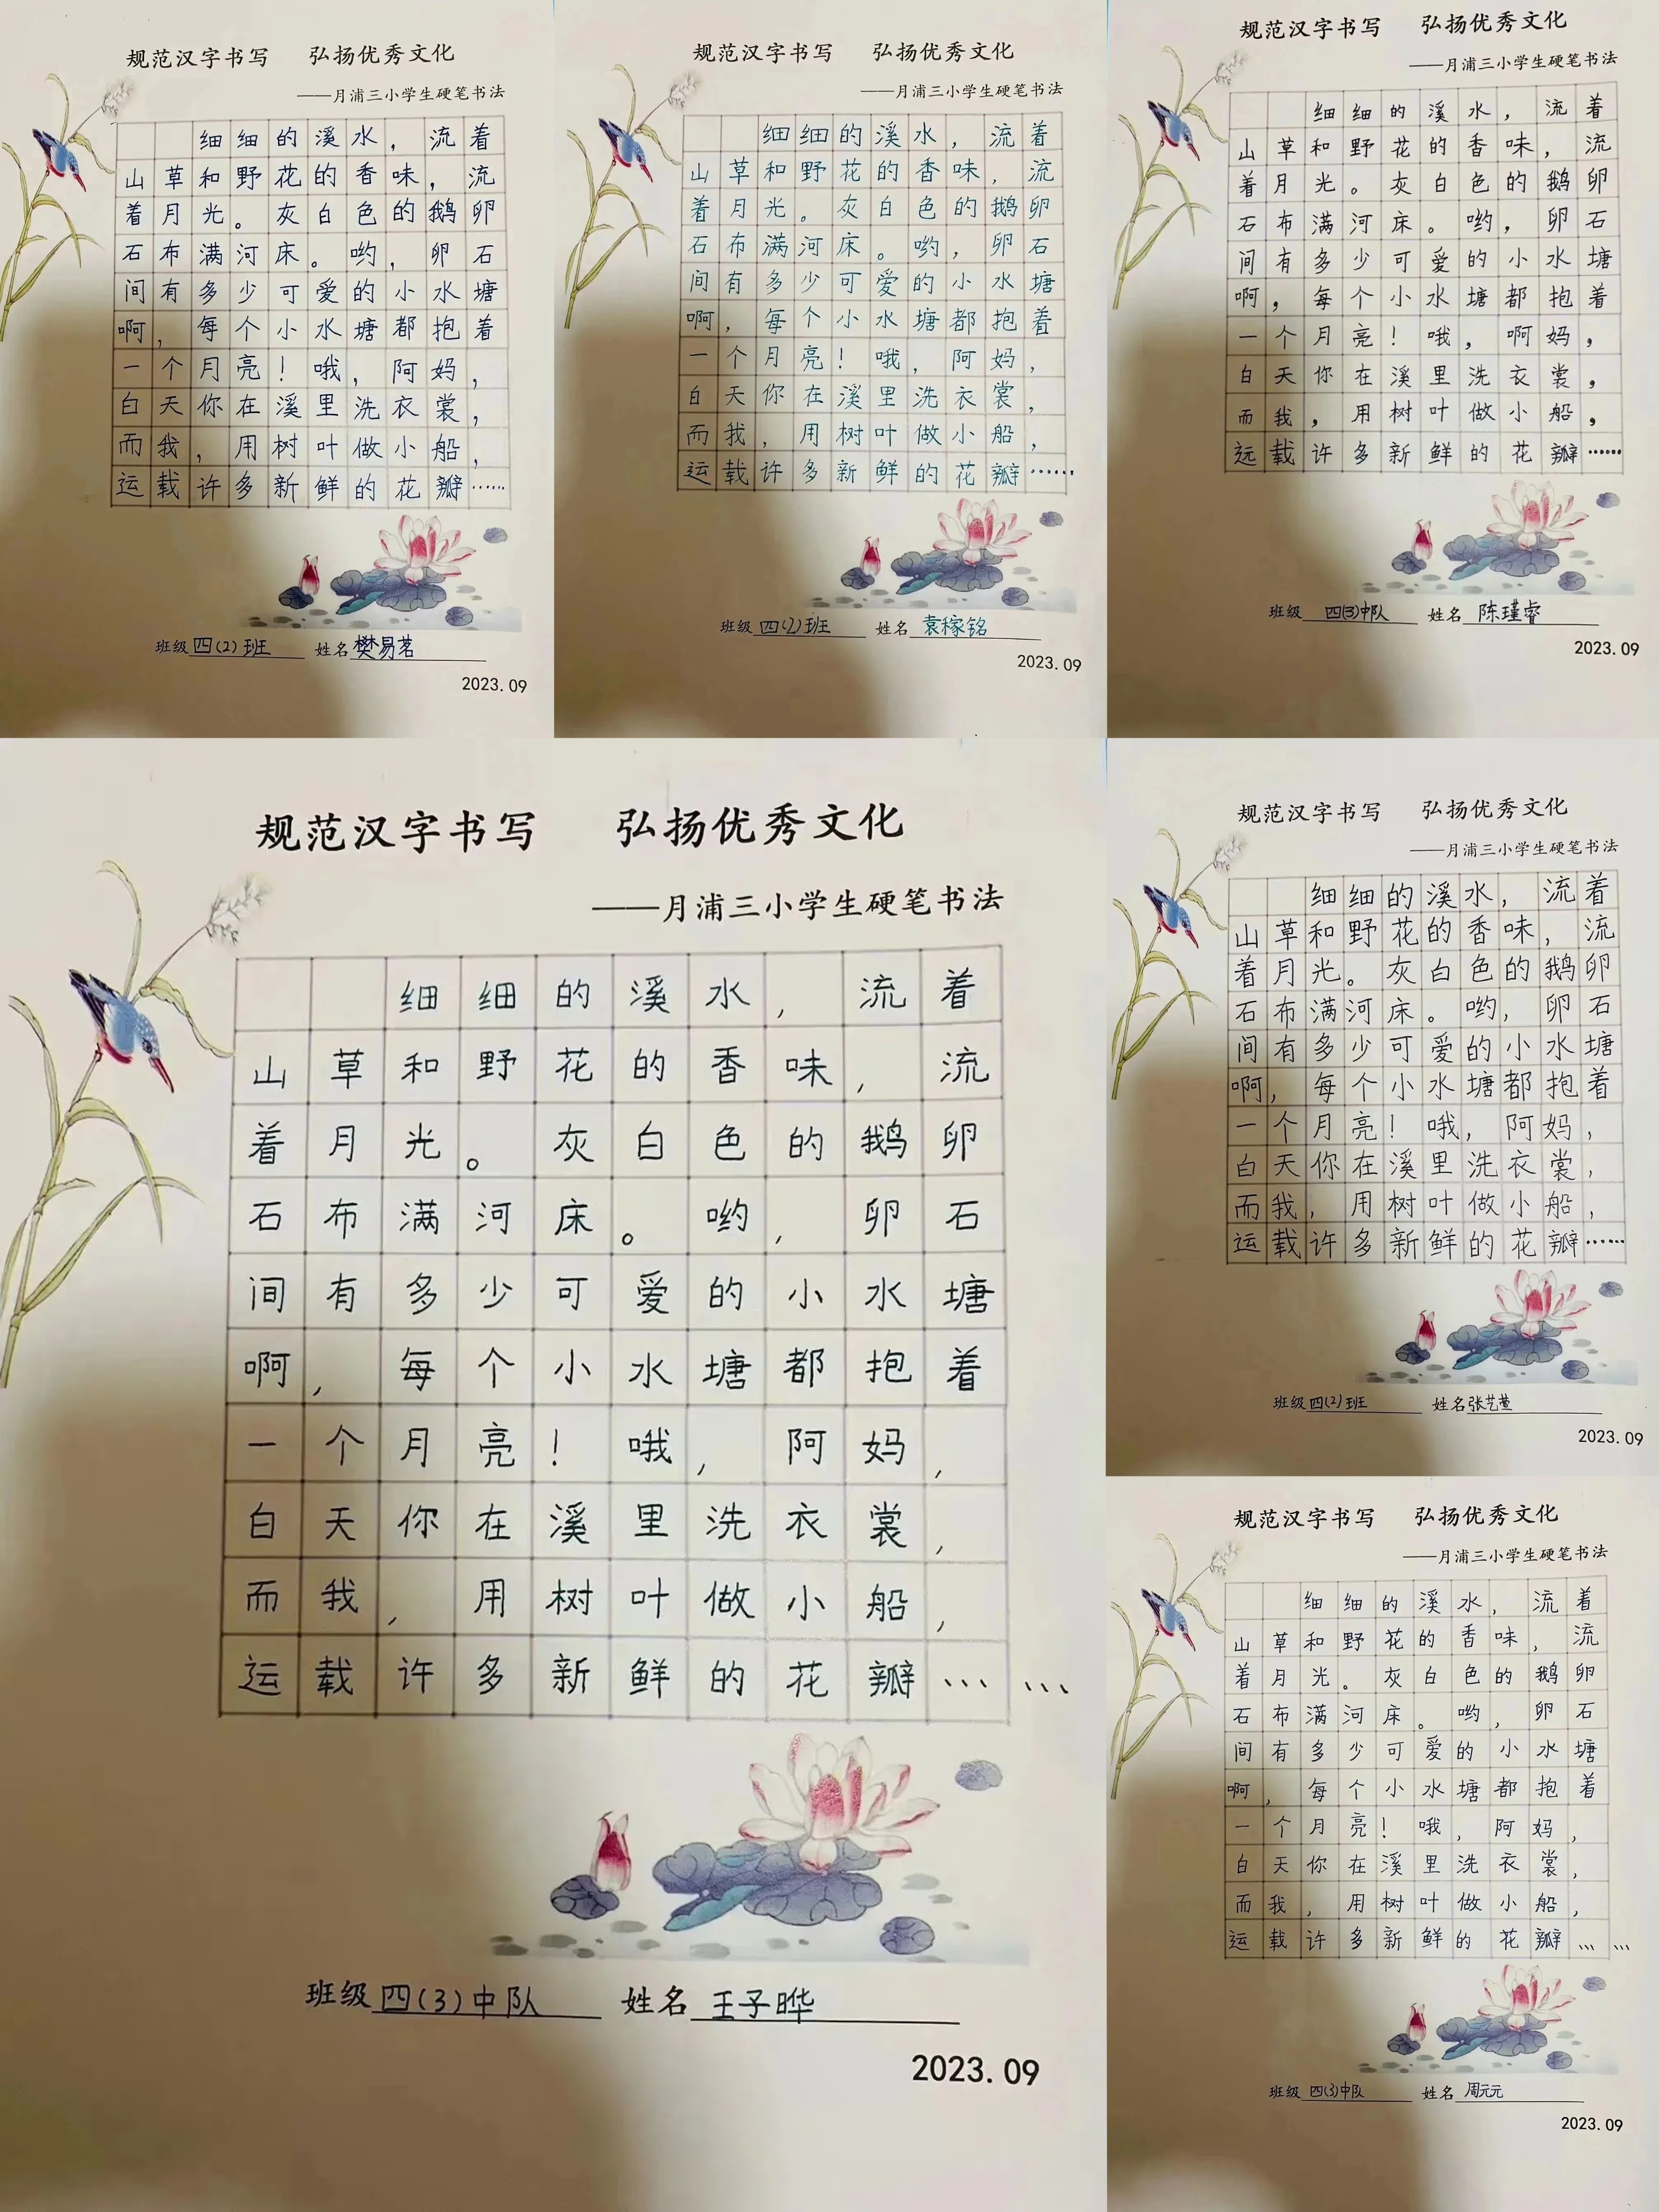 规范汉字书写 弘扬优秀文化
——月浦三小学生硬笔书法
细细的溪水，流着
山草和野花的香味，流
着月光。灰白色的鹅卵
石布满河床。哟，卵石
间有多少可爱的小水塘
啊，每个小水塘都抱着
一个月亮！哦，阿妈，
白天你在溪里洗衣裳，
而我，用树叶做小船，
运载许多新鲜的花瓣……
班级 四(2)班 姓名 樊易茗
2023.09
规范汉字书写 弘扬优秀文化
——月浦三小学生硬笔书法
细细的溪水，流着
山草和野花的香味，流
着月光。灰白色的鹅卵
石布满河床。哟，卵石
间有多少可爱的小水塘
啊，每个小水塘都抱着
一个月亮！哦，阿妈，
白天你在溪里洗衣裳，
而我，用树叶做小船，
运载许多新鲜的花瓣……
班级 四(2)班 姓名 袁稼铭
2023.09
规范汉字书写 弘扬优秀文化
——月浦三小学生硬笔书法
细细的溪水，流着
山草和野花的香味，流
着月光。灰白色的鹅卵
石布满河床。哟，卵石
间有多少可爱的小水塘
啊，每个小水塘都抱着
一个月亮！哦，啊妈，
白天你在溪里洗衣裳，
而我，用树叶做小船，
远载许多新鲜的花瓣……
班级 四(3)中队 姓名 陈瑾睿
2023.09
规范汉字书写 弘扬优秀文化
——月浦三小学生硬笔书法
细细的溪水，流着
山草和野花的香味，流
着月光。灰白色的鹅卵
石布满河床。哟，卵石
间有多少可爱的小水塘
啊，每个小水塘都抱着
一个月亮！哦，阿妈，
白天你在溪里洗衣裳，
而我，用树叶做小船，
运载许多新鲜的花瓣……
班级 四(3)中队 姓名 王子晔
2023.09
规范汉字书写 弘扬优秀文化
——月浦三小学生硬笔书法
细细的溪水，流着
山草和野花的香味，流
着月光。灰白色的鹅卵
石布满河床。哟，卵石
间有多少可爱的小水塘
啊，每个小水塘都抱着
一个月亮！哦，阿妈，
白天你在溪里洗衣裳，
而我，用树叶做小船，
运载许多新鲜的花瓣……
班级 四(2)班 姓名 张艺萱
2023.09
规范汉字书写 弘扬优秀文化
——月浦三小学生硬笔书法
细细的溪水，流着
山草和野花的香味，流
着月光。灰白色的鹅卵
石布满河床。哟，卵石
间有多少可爱的小水塘
啊，每个小水塘都抱着
一个月亮！哦，阿妈，
白天你在溪里洗衣裳，
而我，用树叶做小船，
运载许多新鲜的花瓣……
班级 四(3)中队 姓名 周元元
2023.09